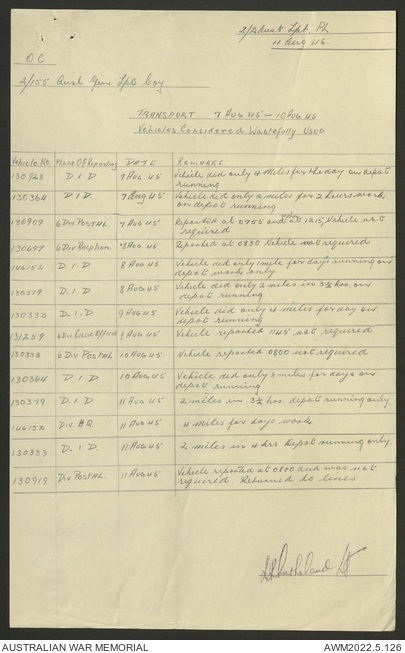 2/2 Aust Tpt. Pl
11 Aug 45.
O C
2/155 Aust Gen Tpt Coy
TRANSPORT 7 AUG 45 – 10 AUG 45
Vehicles Considered Wastefully Used
Vehicle No. Place Of Reporting DATE Remarks
130923 D.I.D 7 AUG 45 Vehicle did only 4 miles for the day on depot
running
130364 D.I.D. 7 AUG 45 Vehicle did only 2 miles for 2 hours work
on depot running
130909 6 Div. POSTAL 7 AUG 45 Reported at 0755 and at 1215 Vehicle not
required
130699 6 Div Reception 8 AUG 45 Reported at 0830 Vehicle not required
146152 D.I.D. 8 AUG 45 Vehicle did only 1 mile for days running on
depot work only
130379 D.I.D. 8 AUG 45 Vehicle did only 2 miles in 3½ hrs on
depot running
130333 D.I.D 9 AUG 45 Vehicle did only 4 miles for day on
depot running
131259 6 Div 9 AUG 45 Vehicle reported 1145 not required
6 Div POSTAL 10 AUG 45 Vehicle reported 0800 not required
130364 D.I.D 10 AUG 45 Vehicle did only 3 miles for day on
depot running.
130379 D.I.D 11 AUG 45 2 miles in 3½ hrs. depot running only
146152 Div. HQ. 11 AUG 45 4 miles for days work
130333 D.I.D. 11 AUG 45 2 miles in 4 hrs Depot running only.
130919 Div. POSTAL. 11 AUG 45 Vehicle reported at 0800 and was not
required. Returned to lines
AUSTRALIAN WAR MEMORIAL AWM2022.5.126